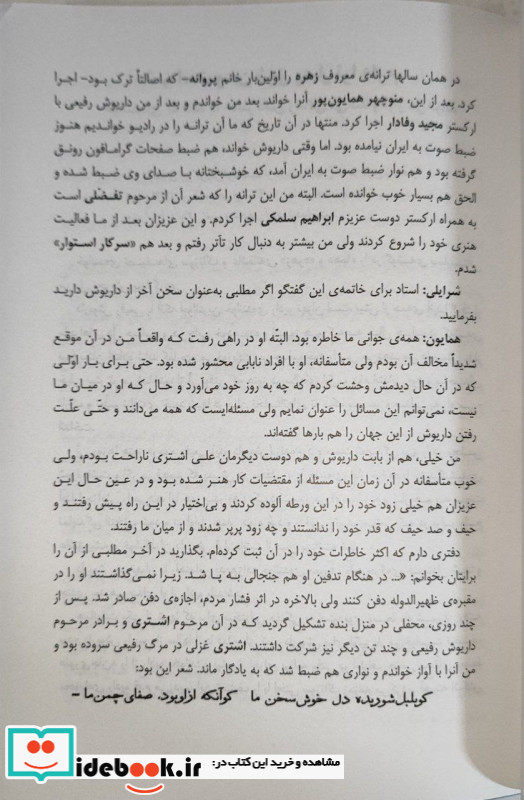 در همان سالها ترانه‌ی معروف زهره را اوّلین‌بار خانم پروانه- که اصالتاً ترک بود- اجرا
کرد. بعد از این، منوچهر همایون‌پور آنرا خواند، بعد من خواندم و بعد از من داریوش رفیعی با
ارکستر مجید وفادار اجرا کرد. منتها در آن تاریخ که ما آن ترانه را در رادیو خواندیم هنوز
ضبط صوت به ایران نیامده بود. اما وقتی داریوش خواند، هم ضبط صفحات گرامافون رونق
گرفته بود و هم نوار ضبط صوت به ایران آمد، که خوشبختانه با صدای وی ضبط شده و
الحق هم بسیار خوب خوانده است. البته من این ترانه را که شعر آن از مرحوم تفضّلی است
به همراه ارکستر دوست عزیزم ابراهیم سلمکی اجرا کردم. و این عزیزان بعد از ما فعالیت
هنری خود را شروع کردند ولی من بیشتر به دنبال کار تأتر رفتم و بعد هم «سرکار استوار»
شدم.
شرایلی: استاد برای خاتمه‌ی این گفتگو اگر مطلبی به‌عنوان سخن آخر از داریوش دارید
بفرمایید.
همایون: همه‌ی جوانی ما خاطره بود. البتّه او در راهی رفت که واقعاً من در آن موقع
شدیداً مخالف آن بودم ولی متأسفانه، او با افراد نابابی محشور شده بود. حتی برای بار اوّلی
که در آن حال دیدمش وحشت کردم که چه به روز خود می‌آورد و حال که او در میان ما
نیست، نمی‌توانم این مسائل را عنوان نمایم ولی مسئله‌ایست که همه می‌دانند و حتّی علّت
رفتن داریوش از این جهان را هم بارها گفته‌اند.
من خیلی، هم از بابت داریوش و هم دوست دیگرمان علی اشتری ناراحت بودم، ولی
خوب متأسفانه در آن زمان این مسئله از مقتضیات کار هنر شده بود و در عین حال این
عزیزان هم خیلی زود خود را در این ورطه آلوده کردند و بی‌اختیار در این راه پیش رفتند و
حیف و صد حیف که قدر خود را ندانستند و چه زود پرپر شدند و از میان ما رفتند.
دفتری دارم که اکثر خاطرات خود را در آن ثبت کرده‌ام. بگذارید در آخر مطلبی از آن را
برایتان بخوانم: «... در هنگام تدفین او هم جنجالی به پا شد. زیرا نمی‌گذاشتند او را در
مقبره‌ی ظهیرالدوله دفن کنند ولی بالاخره در اثر فشار مردم، اجازه‌ی دفن صادر شد. پس از
چند روزی، محفلی در منزل بنده تشکیل گردید که در آن مرحوم اشتری و برادر مرحوم
داریوش رفیعی و چند تن دیگر نیز شرکت داشتند. اشتری غزلی در مرگ رفیعی سروده بود و
من آنرا با آواز خواندم و نواری هم ضبط شد که به یادگار ماند. شعر این بود:
کو بلبل شوریده دل خوش سخن ما کو آنکه از او بود، صفای چمن ما -
مشاهده و خرید این کتاب در:
idebook.ir